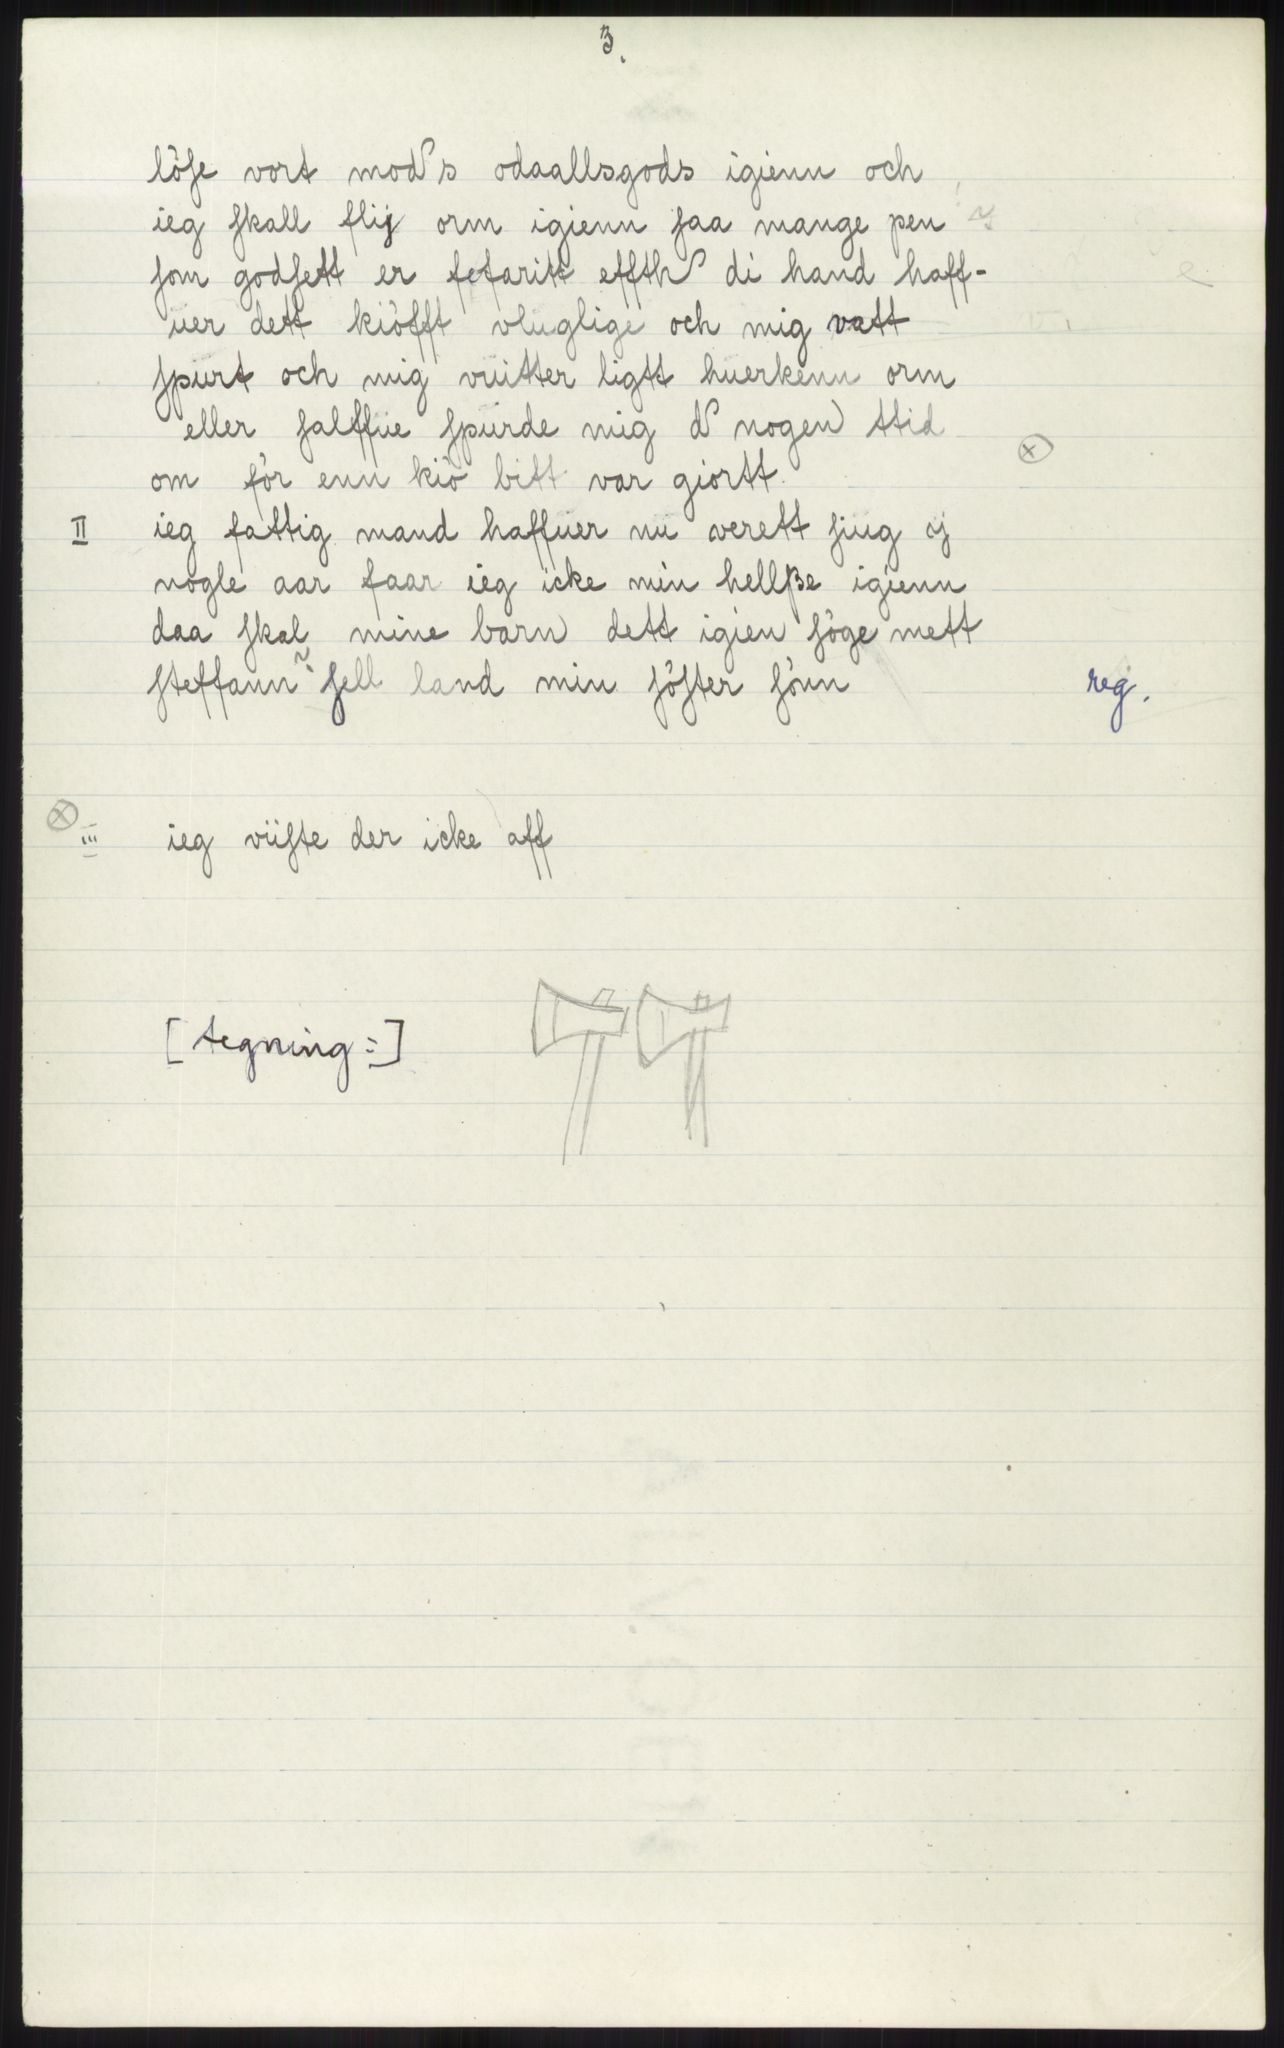 3.
löse vort mod s odaallsgods igienn och
ieg skall flij orm igienn saa mange pen
som godsett er fetaritt effth di hand haff-
uer dett kiöfft vluglige och mig vatt
spurt och mig vuitter ligtt huerkenn orm
eller salffue spurde mig d nogen ttid
om för enn kiö bitt var giortt
II ieg fattig mand haffuer nu verett siug
nogle aar faar ieg icke min hellsze igienn
daa skal mine barn dett igien söge mett
steffann sell land min söster sönn reg.
III ieg vüste der icke aff
[tegning:]